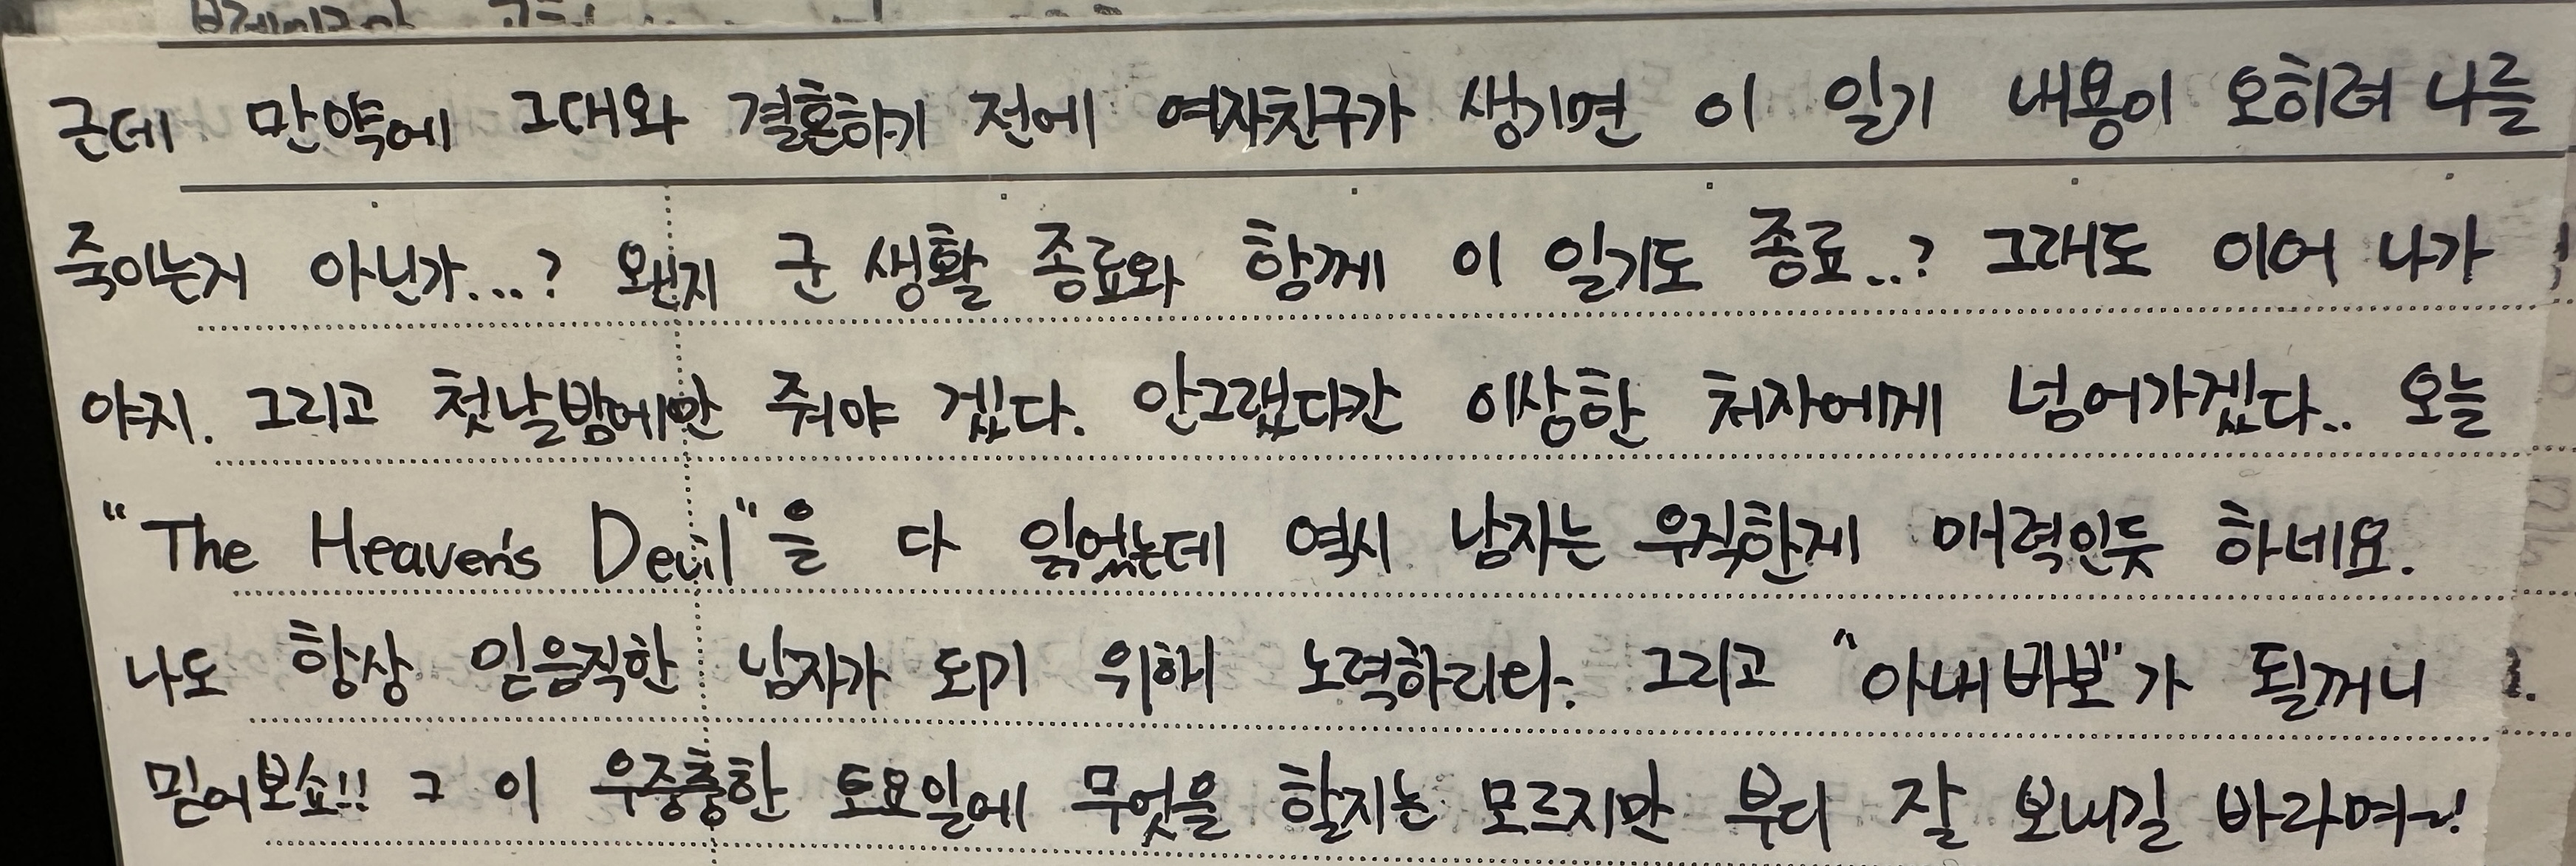 근데 만약에 그대와 결혼하기 전에 여자친구가 생기면 이 일기 내용이 오히려 나를
죽이는거 아닌가...? 왠지 군 생활 종료와 함께 이 일기도 종료..? 그래도 이어 나가
야지. 그리고 첫날밤에만 줘야 겠다. 안그랬다간 이상한 처자에게 넘어가겠다.. 오늘
"The Heaven's Devil"을 다 읽었는데 역시 남자는 우직한게 매력인듯 하네요.
나도 항상 믿음직한 남자가 되기 위해 노력하리라. 그리고 "아내바보"가 될꺼니
믿어보쇼!! 그 이 우중충한 토요일에 무엇을 할지는 모르지만 부디 잘 보내길 바라며~!